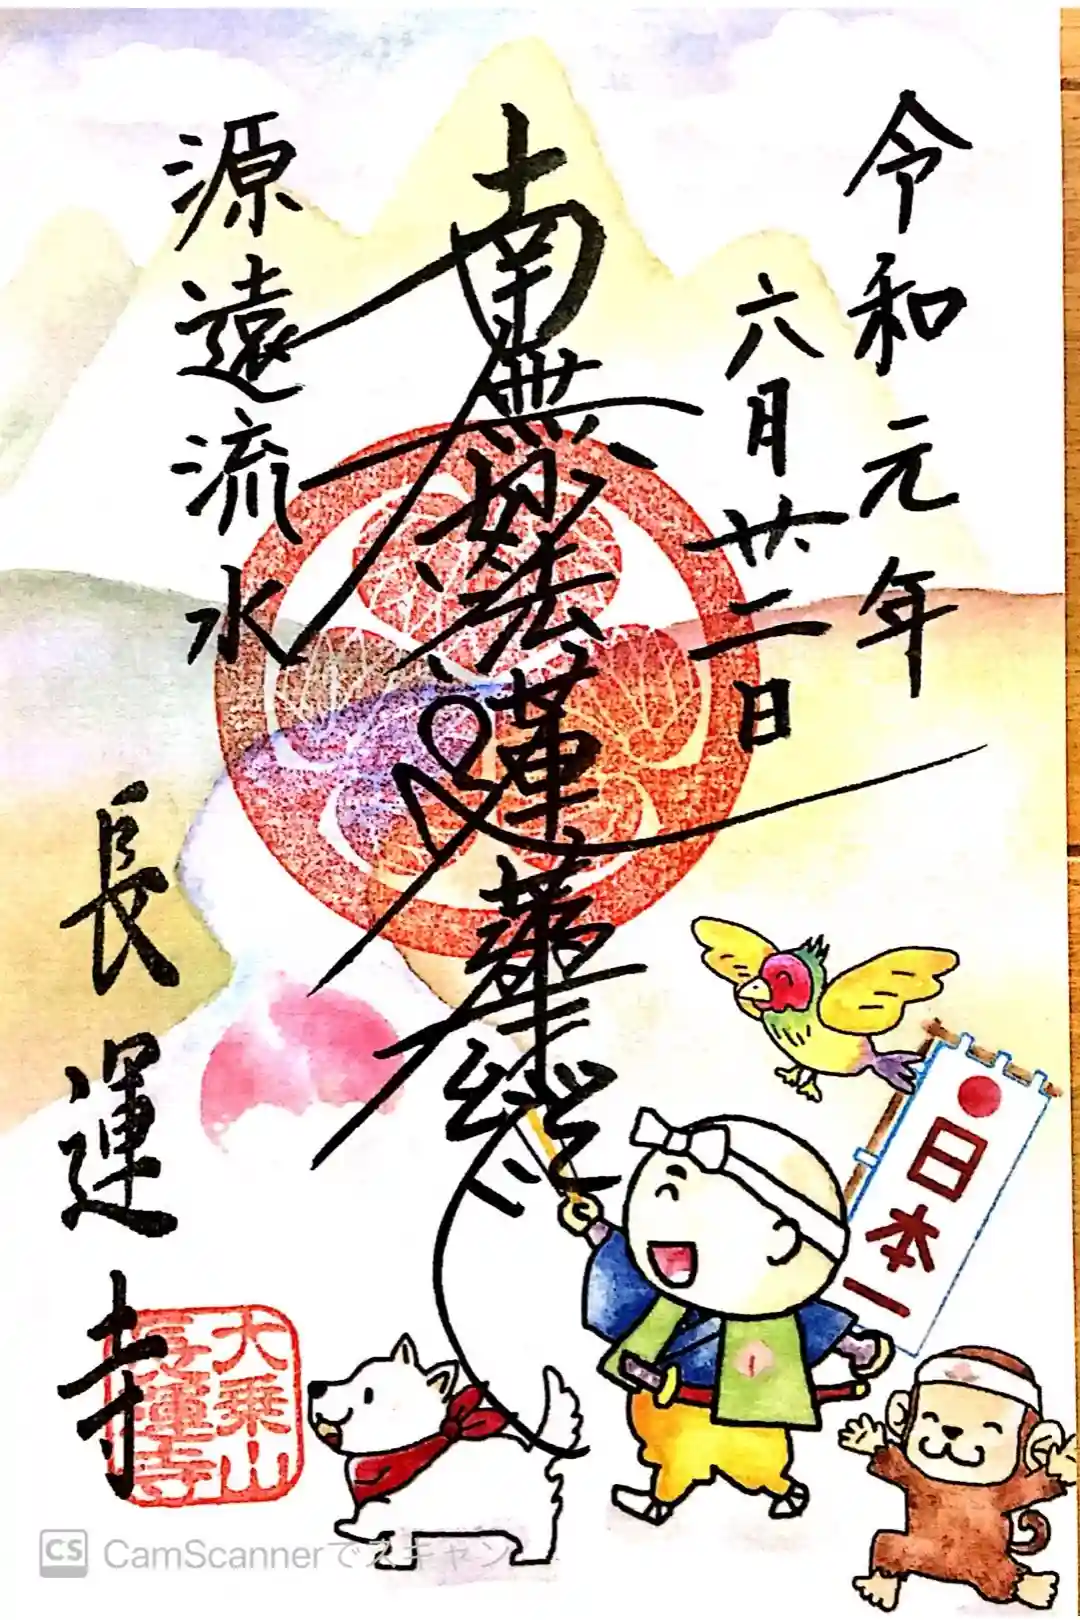 令和元年
六月廿二日
南無妙法蓮華経
源遠流水
長運寺
大乗山
長運寺
日本一
CamScannerでスキャン